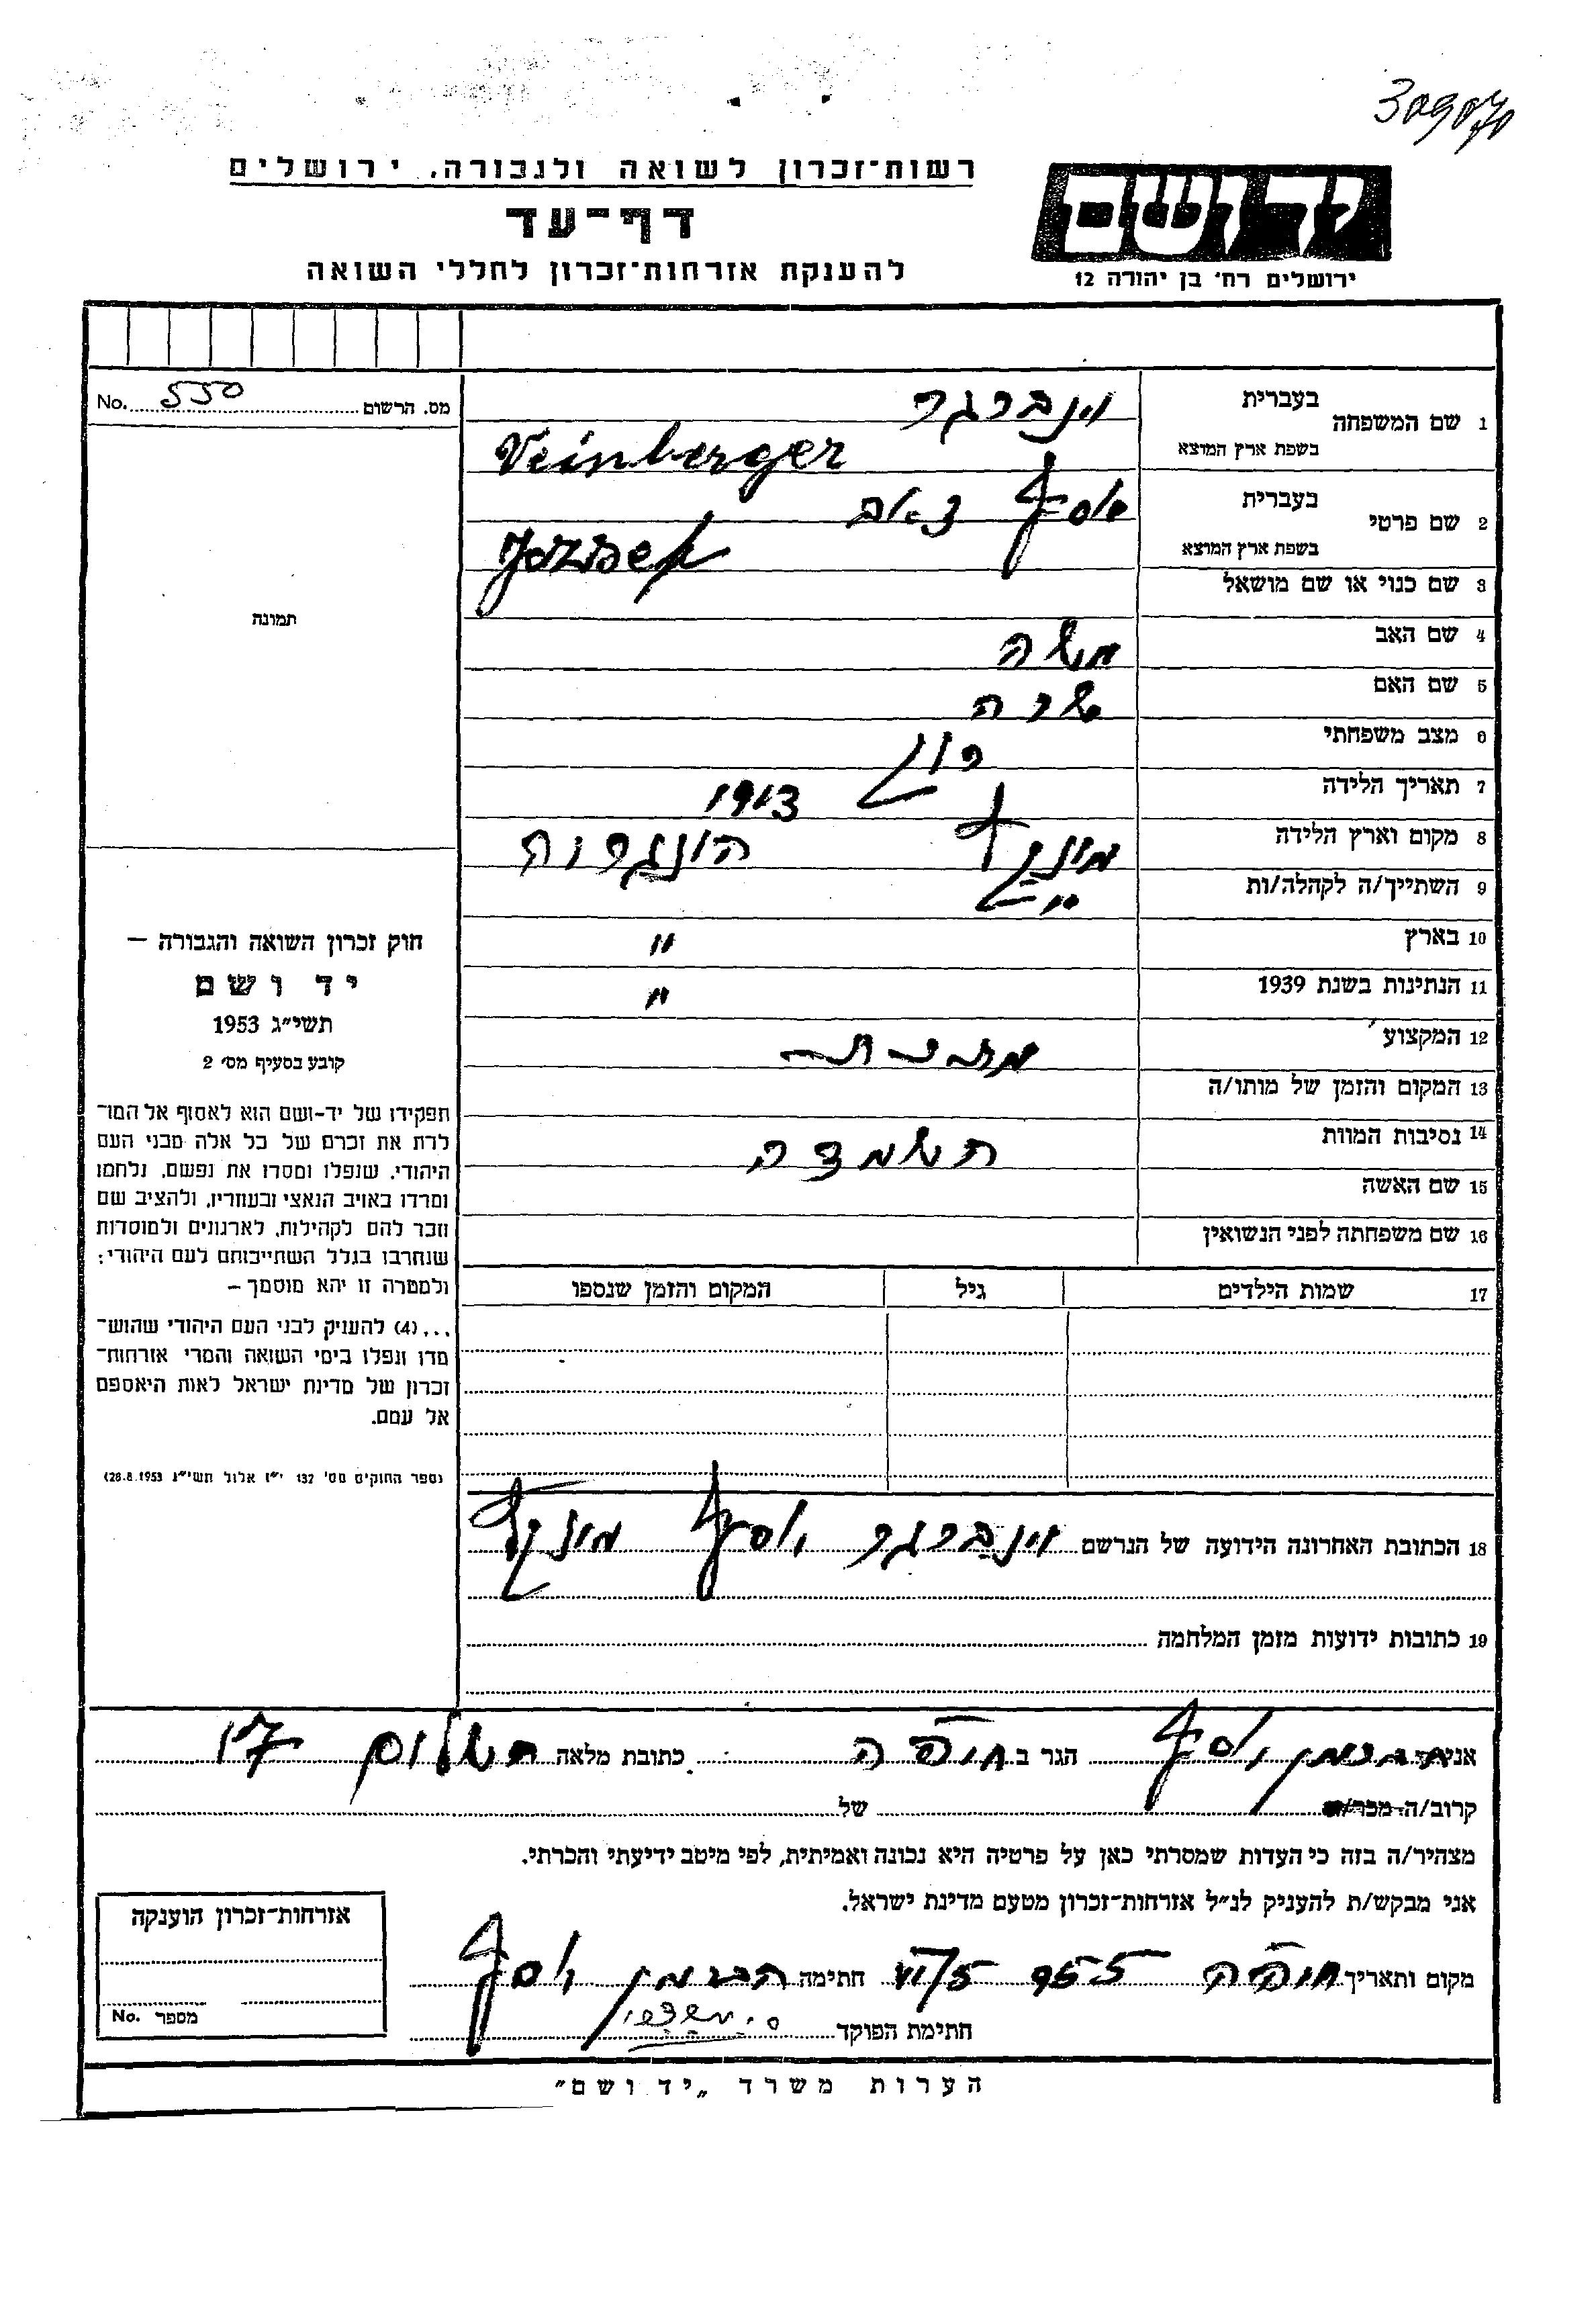 309070
יד ושם
ירושלים רח' בן יהודה 12
רשות־זכרון לשואה ולגבורה, ירושלים
דף־עד
להענקת אזרחות־זכרון לחללי השואה
מס. הרשום 550 No.
תמונה
1 שם המשפחה בעברית וינברגר
בשפת ארץ המוצא Veinberger
2 שם פרטי בעברית יוסף זאב
בשפת ארץ המוצא Jozsef
3 שם כנוי או שם מושאל
4 שם האב משה
5 שם האם שרה
6 מצב משפחתי רווק
7 תאריך הלידה 1913
8 מקום וארץ הלידה הונגריה
9 השתייך/ה לקהלה/ות
10 בארץ "
11 הנתינות בשנת 1939 "
12 המקצוע
13 המקום והזמן של מותו/ה
14 נסיבות המוות השמדה
15 שם האשה
16 שם משפחתה לפני הנשואין
17 שמות הילדים גיל המקום והזמן שנספו
18 הכתובת האחרונה הידועה של הנרשם וינברגר יוסף
19 כתובות ידועות מזמן המלחמה
חוק זכרון השואה והגבורה –
יד ושם
תשי"ג 1953
קובע בסעיף מס' 2
תפקידו של יד-ושם הוא לאסוף אל המו־
לדת את זכרם של כל אלה מבני העם
היהודי, שנפלו ומסרו את נפשם, נלחמו
ומרדו באויב הנאצי ובעוזריו, ולהציב שם
וזכר להם לקהילות, לארגונים ולמוסדות
שנחרבו בגלל השתייכותם לעם היהודי;
ולמטרה זו יהא מוסמך –
...(4) להעניק לבני העם היהודי שהוש־
מדו ונפלו בימי השואה והמרי אזרחות־
זכרון של מדינת ישראל לאות היאספם
אל עמם.
(ספר החוקים מס' 132 י"ז אלול תשי"ג 28.8.1953)
אני יוסף הגר ב חיפה כתובת מלאה השלום
קרוב/ה מכר/ה של
מצהיר/ה בזה כי העדות שמסרתי כאן על פרטיה היא נכונה ואמיתית, לפי מיטב ידיעתי והכרתי.
אני מבקש/ת להעניק לנ"ל אזרחות־זכרון מטעם מדינת ישראל.
מקום ותאריך חיפה חתימה יוסף
חתימת הפוקד
אזרחות־זכרון הוענקה
מספר No.
הערות משרד „יד ושם"